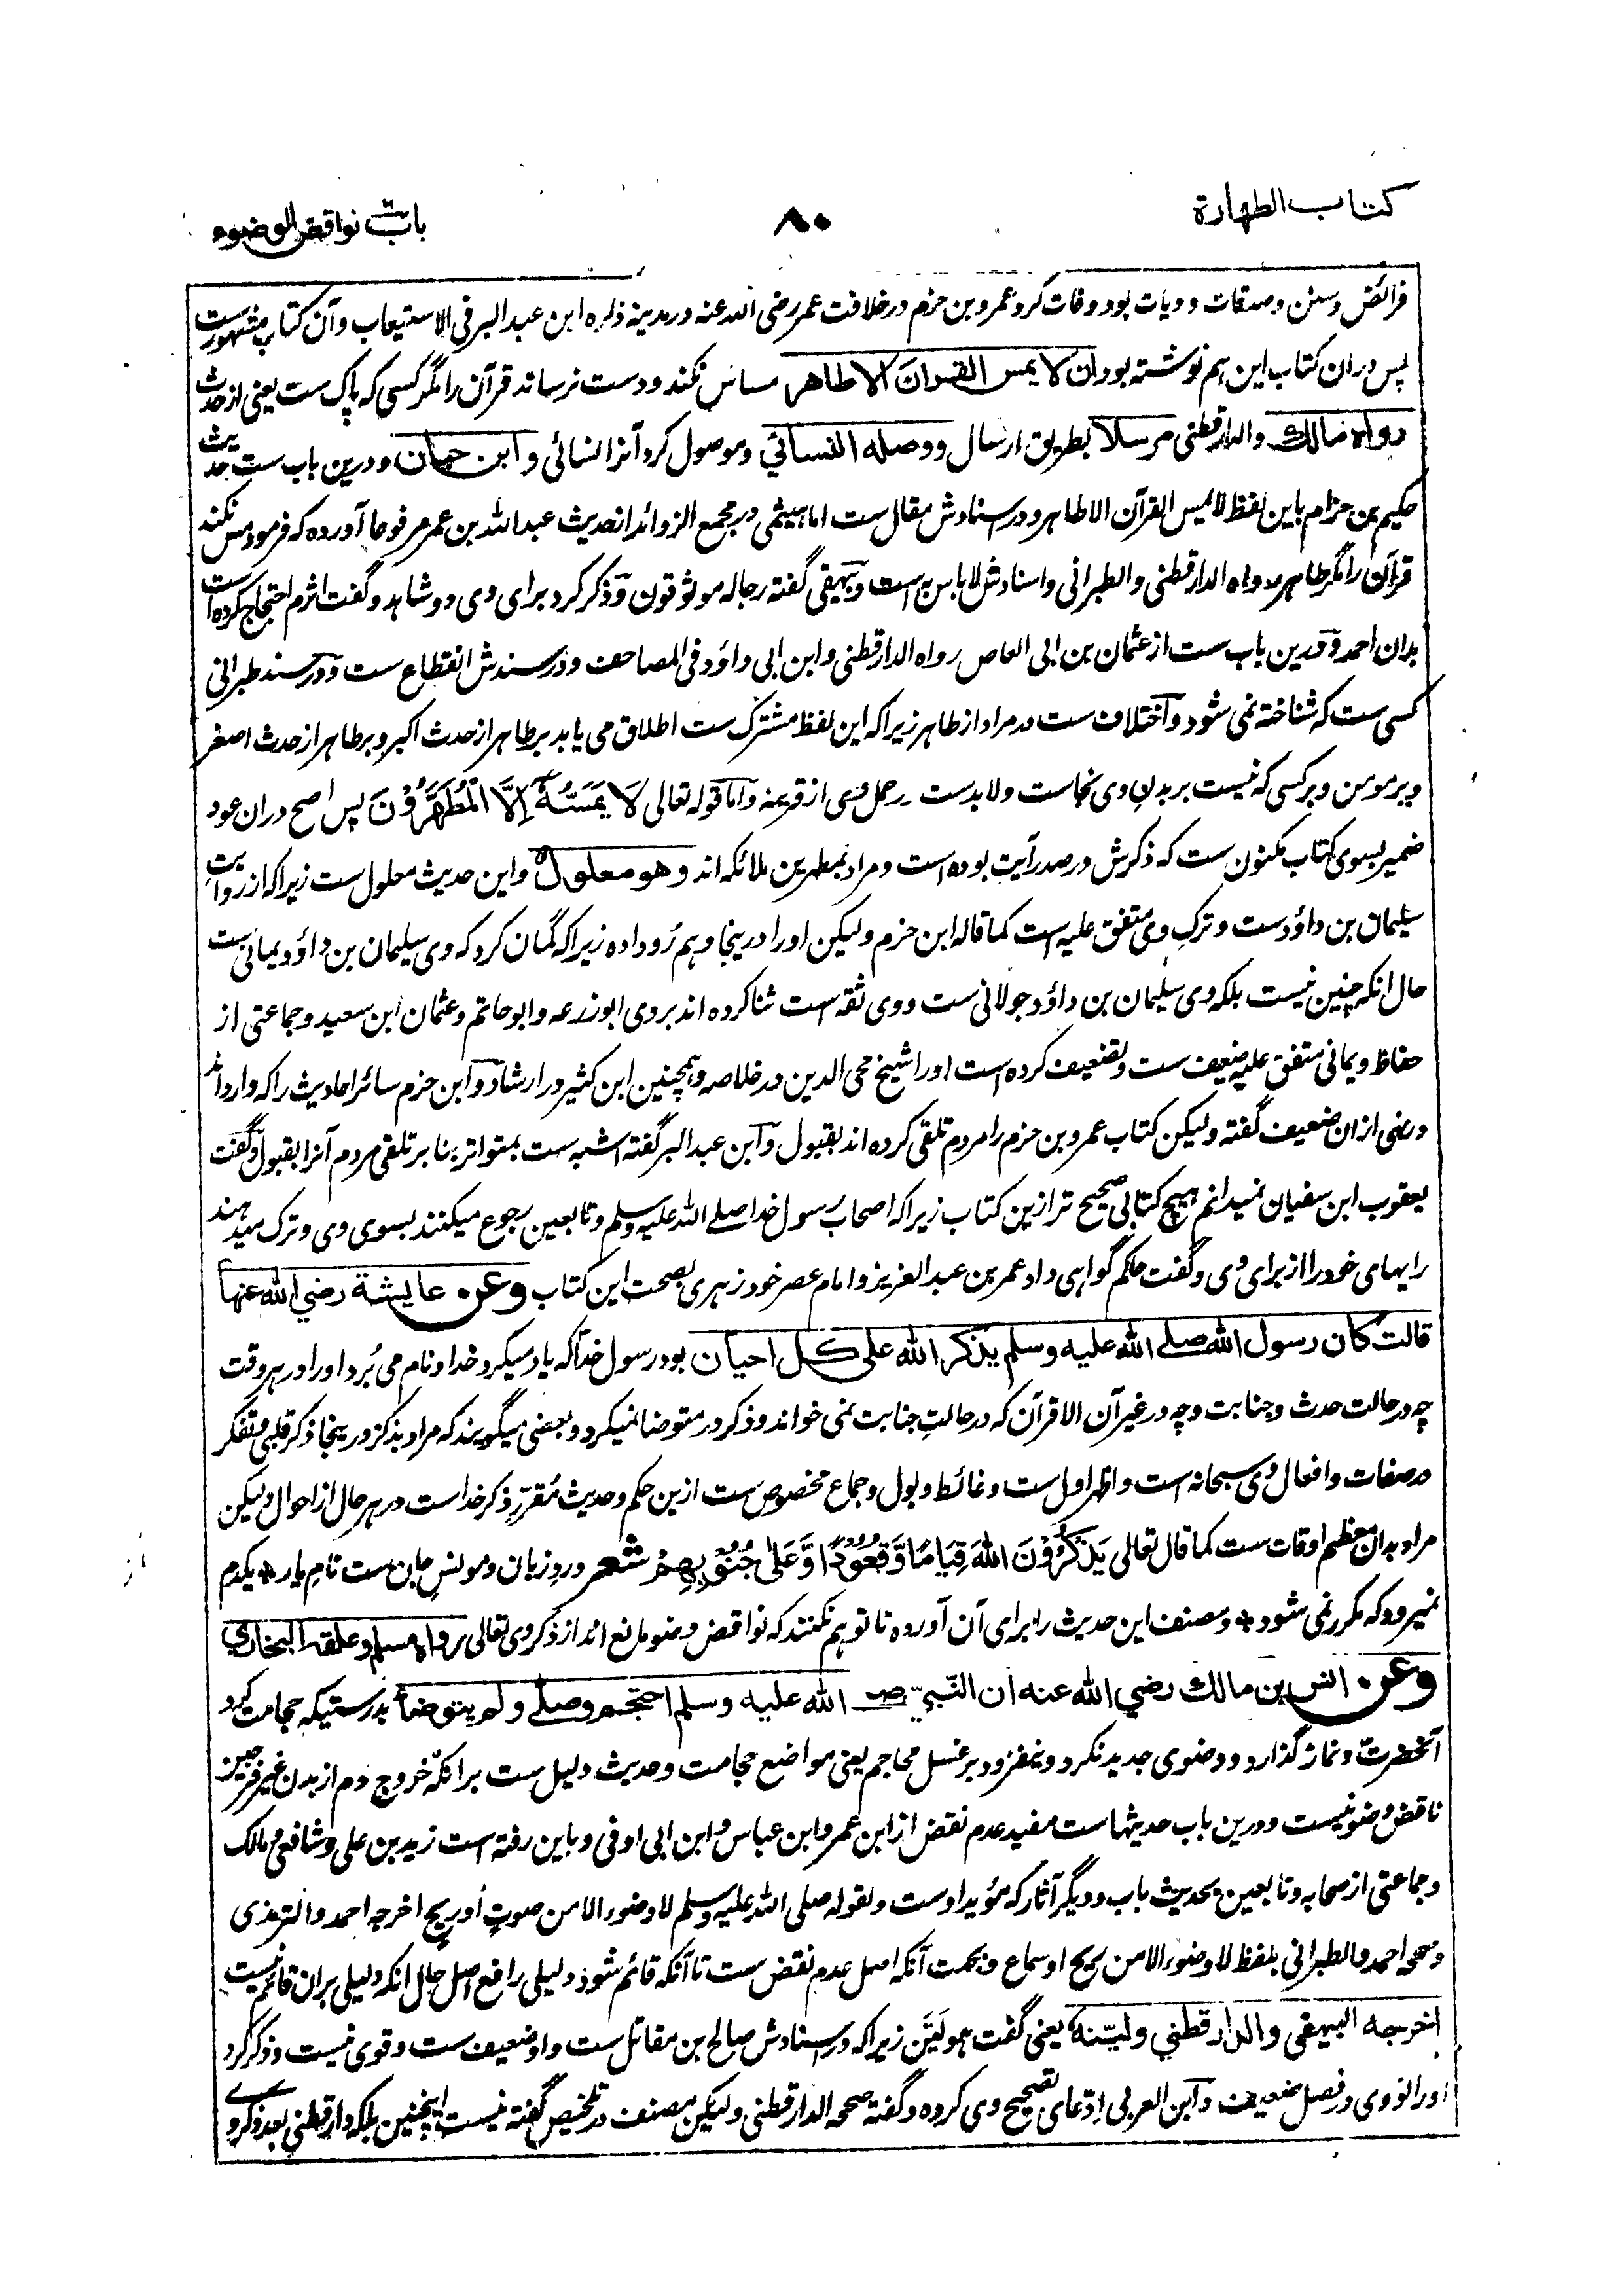 کتاب الطهارة
۸۰
باب نواقض الوضوء
فرائض و سنن و صدقات و دیات بود و وفات کرد عمرو بن حزم در خلافت عمر رضی الله عنه در مدینه ذکره ابن عبد البر فی الاستیعاب و آن کتاب مشهورست
پس دران کتاب این هم نوشته بود ان لا یمس القران الا طاهر مساس نکند و دست نرساند قرآن را مگر کسی که پاک ست یعنی از حدث
رواه مالك والدارقطنی مرسلا بطریق ارسال ووصله النسائي و موصول کرد آنرا نسائی وابن حبان و درین باب ست حدیث
حکیم بن حزام باین لفظ لا یمس القرآن الا طاهر و در اسنادش مقال ست اما هیثمی در مجمع الزوائد از حدیث عبد الله بن عمر مرفوعا آورده که فرمود مس نکند
قرآن را مگر طاهر رواه الدارقطنی والطبرانی و اسنادش لا باس به است و بیهقی گفته رجاله موثوقون و ذکر کرد برای وی دو شاهد و گفت اثرم احتجاج کرده است
بدان احمد و درین باب ست از عثمان بن ابی العاص رواه الدارقطنی و ابن ابی داؤد فی المصاحف و در سندش انقطاع ست و در سند طبرانی
کسی ست که شناخته نمی شود و اختلاف ست در مراد از طاهر زیرا که این لفظ مشترک ست اطلاق می یابد بر طاهر از حدث اکبر و بر طاهر از حدث اصغر
و بر مومن و بر کسی که نیست بر بدن وی نجاست و لا بدست در حمل وی از قرینه و اما قوله تعالی لَا يَمَسُّهُ إِلَّا الْمُطَهَّرُوْنَ پس اصح دران عود
ضمیر بسوی کتاب مکنون ست که ذکرش در صدر آیت بوده است و مراد بمطهرین ملائکه اند وهو معلول و این حدیث معلول ست زیرا که از روایت
سلیمان بن داؤدست و ترک وی متفق علیه است کما قاله ابن حزم و لیکن او را درینجا وهم رُو داده زیرا که گمان کرد که وی سلیمان بن داؤد یمانی ست
حال انکه چنین نیست بلکه وی سلیمان بن داؤد جولانی ست و وی ثقه است ثنا کرده اند بر وی ابوزرعه و ابوحاتم و عثمان ابن سعید و جماعتی از
حفاظ و یمانی متفق علیه ضعیف ست و تضعیف کرده است او را شیخ محی الدین در خلاصه و همچنین ابن کثیر در ارشاد و ابن حزم سائر احادیث را که وارد اند
در نهی ازان ضعیف گفته و لیکن کتاب عمرو بن حزم را مردم تلقی کرده اند بقبول و ابن عبد البر گفته اشبه ست بمتواتر بنا بر تلقی مردم آنرا بقبول و گفت
یعقوب ابن سفیان نمیدانم هیچ کتابی صحیح تر ازین کتاب زیرا که اصحاب رسول خدا صلے الله علیه وسلم و تابعین رجوع میکنند بسوی وی و ترک میدهند
رایهای خود را از برای وی و گفت حاکم گواهی داد عمر بن عبد العزیز و امام عصر خود زهری بصحت این کتاب وعن عايشة رضي الله عنها
قالت كان رسول الله صلے الله عليه وسلم يذكر الله على كل احيان بود رسول خدا که یاد میکرد خدا و نام می بُرد او را در هر وقت
چه در حالت حدث و جنابت و چه در غیر آن الا قرآن که در حالتِ جنابت نمی خواند و ذکر در متوضا نمیکرد و بعضی میگویند که مراد بذکر درینجا ذکر قلبی و تفکر
در صفات و افعال وی سبحانه است و اظهر اول ست و غائط و بول و جماع مخصوص ست ازین حکم و حدیث مُقرّرِ ذکر خداست در هر حال از احوال و لیکن
مراد بدان معظم اوقات ست کما قال تعالی يَذْكُرُوْنَ اللهَ قِيَامًا وَّقُعُوْدًا وَّعَلىٰ جُنُوْبِهِمْ شعر وردِ زبان و مونسِ جان ست نامِ یار * یکدم
نمیرود که مکرر نمی شود * و مصنف این حدیث را برای آن آورده تا توهم نکنند که نواقض وضو مانع اند از ذکر وی تعالی رواه مسلم وعلقه البخاري
وعن انس بن مالك رضي الله عنه ان النبيّ صلے الله عليه وسلم احتجم وصلے ولم يتوضأ بدرستیکه حجامت کرد
آنحضرت و نماز گذارد و وضوی جدید نکرد و نیفزود بر غسل محاجم یعنی مواضع حجامت و حدیث دلیل ست برانکه خروج دم از بدن غیر فرجین
ناقض وضو نیست و درین باب حدیثهاست مفید عدم نقض از ابن عمر و ابن عباس و ابن ابی اوفی و باین رفته است زید بن علی و شافعی و مالک
و جماعتی از صحابه و تابعین بحدیث باب و دیگر آثار که مؤید اوست و لقوله صلی الله علیه وسلم لا وضوء الا من صوتٍ او ریح اخرجه احمد والترمذی
و صححه احمد والطبرانی بلفظ لا وضوء الا من ریح او سماع و بجهت آنکه اصل عدم نقض ست تا آنکه قائم شود دلیلی رافع اصل حال انکه دلیلی بران قائم نیست
اخرجه البيهقي والدارقطني وليّنه یعنی گفت هو لَیّن زیرا که در اسنادش صالح بن مقاتل ست و او ضعیف ست و قوی نیست و ذکر کرد
او را نووی در فصل ضعیف و ابن العربی ادّعای تصحیح وی کرده و گفته صححه الدارقطنی و لیکن مصنف در تلخیص گفته نیست اینچنین بلکه دارقطنی بعد ذکر وے